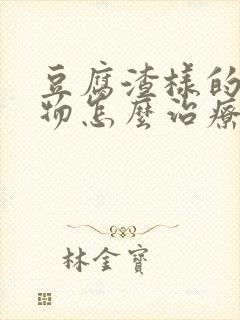 豆腐渣樣的
物怎麼治療
林金寶